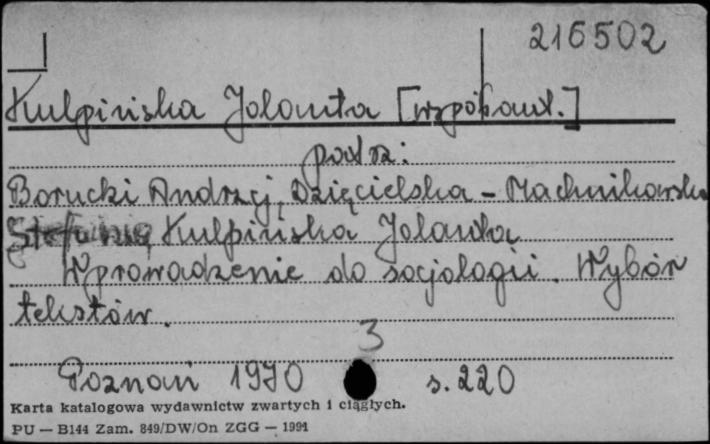 216502
Kulpińska Jolanta [współaut.]
patrz:
Borucki Andrzej, Dzięcielska-Machnikowska
Stefania, Kulpińska Jolanta
Wprowadzenie do socjologii. Wybór
tekstów.
3
Poznań 1970 s. 220
Karta katalogowa wydawnictw zwartych i ciągłych.
PU — B144 Zam. 849/DW/On ZGG — 1991